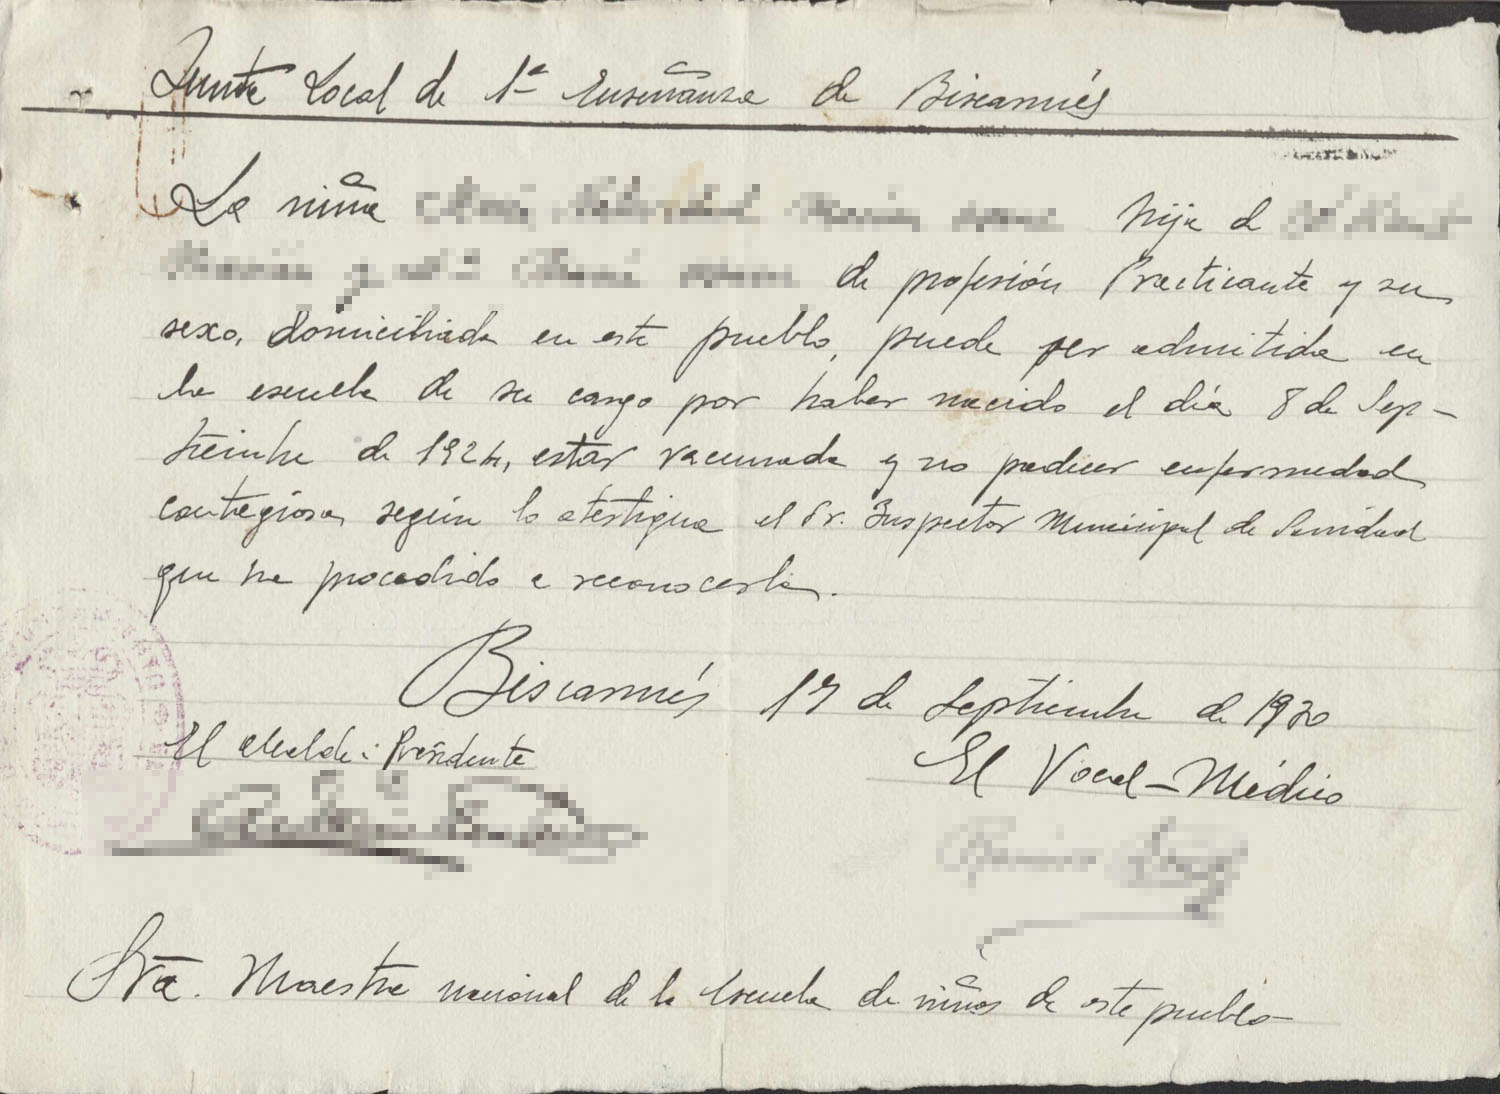 Junta Local de 1ª Enseñanza de Biscarrués
La niña hija de
y de profesión Practicante y su
sexo, domiciliada en este pueblo, puede ser admitida en
la escuela de su cargo por haber nacido el día 8 de Sep-
tiembre de 1924, estar vacunada y no padecer enfermedad
contagiosa, según lo atestigua el Sr. Inspector Municipal de Sanidad
que ha procedido a reconocerla.
Biscarrués 17 de Septiembre de 1930
El Alcalde: Presidente
El Vocal-Médico
Sra. Maestra nacional de la Escuela de niños de este pueblo